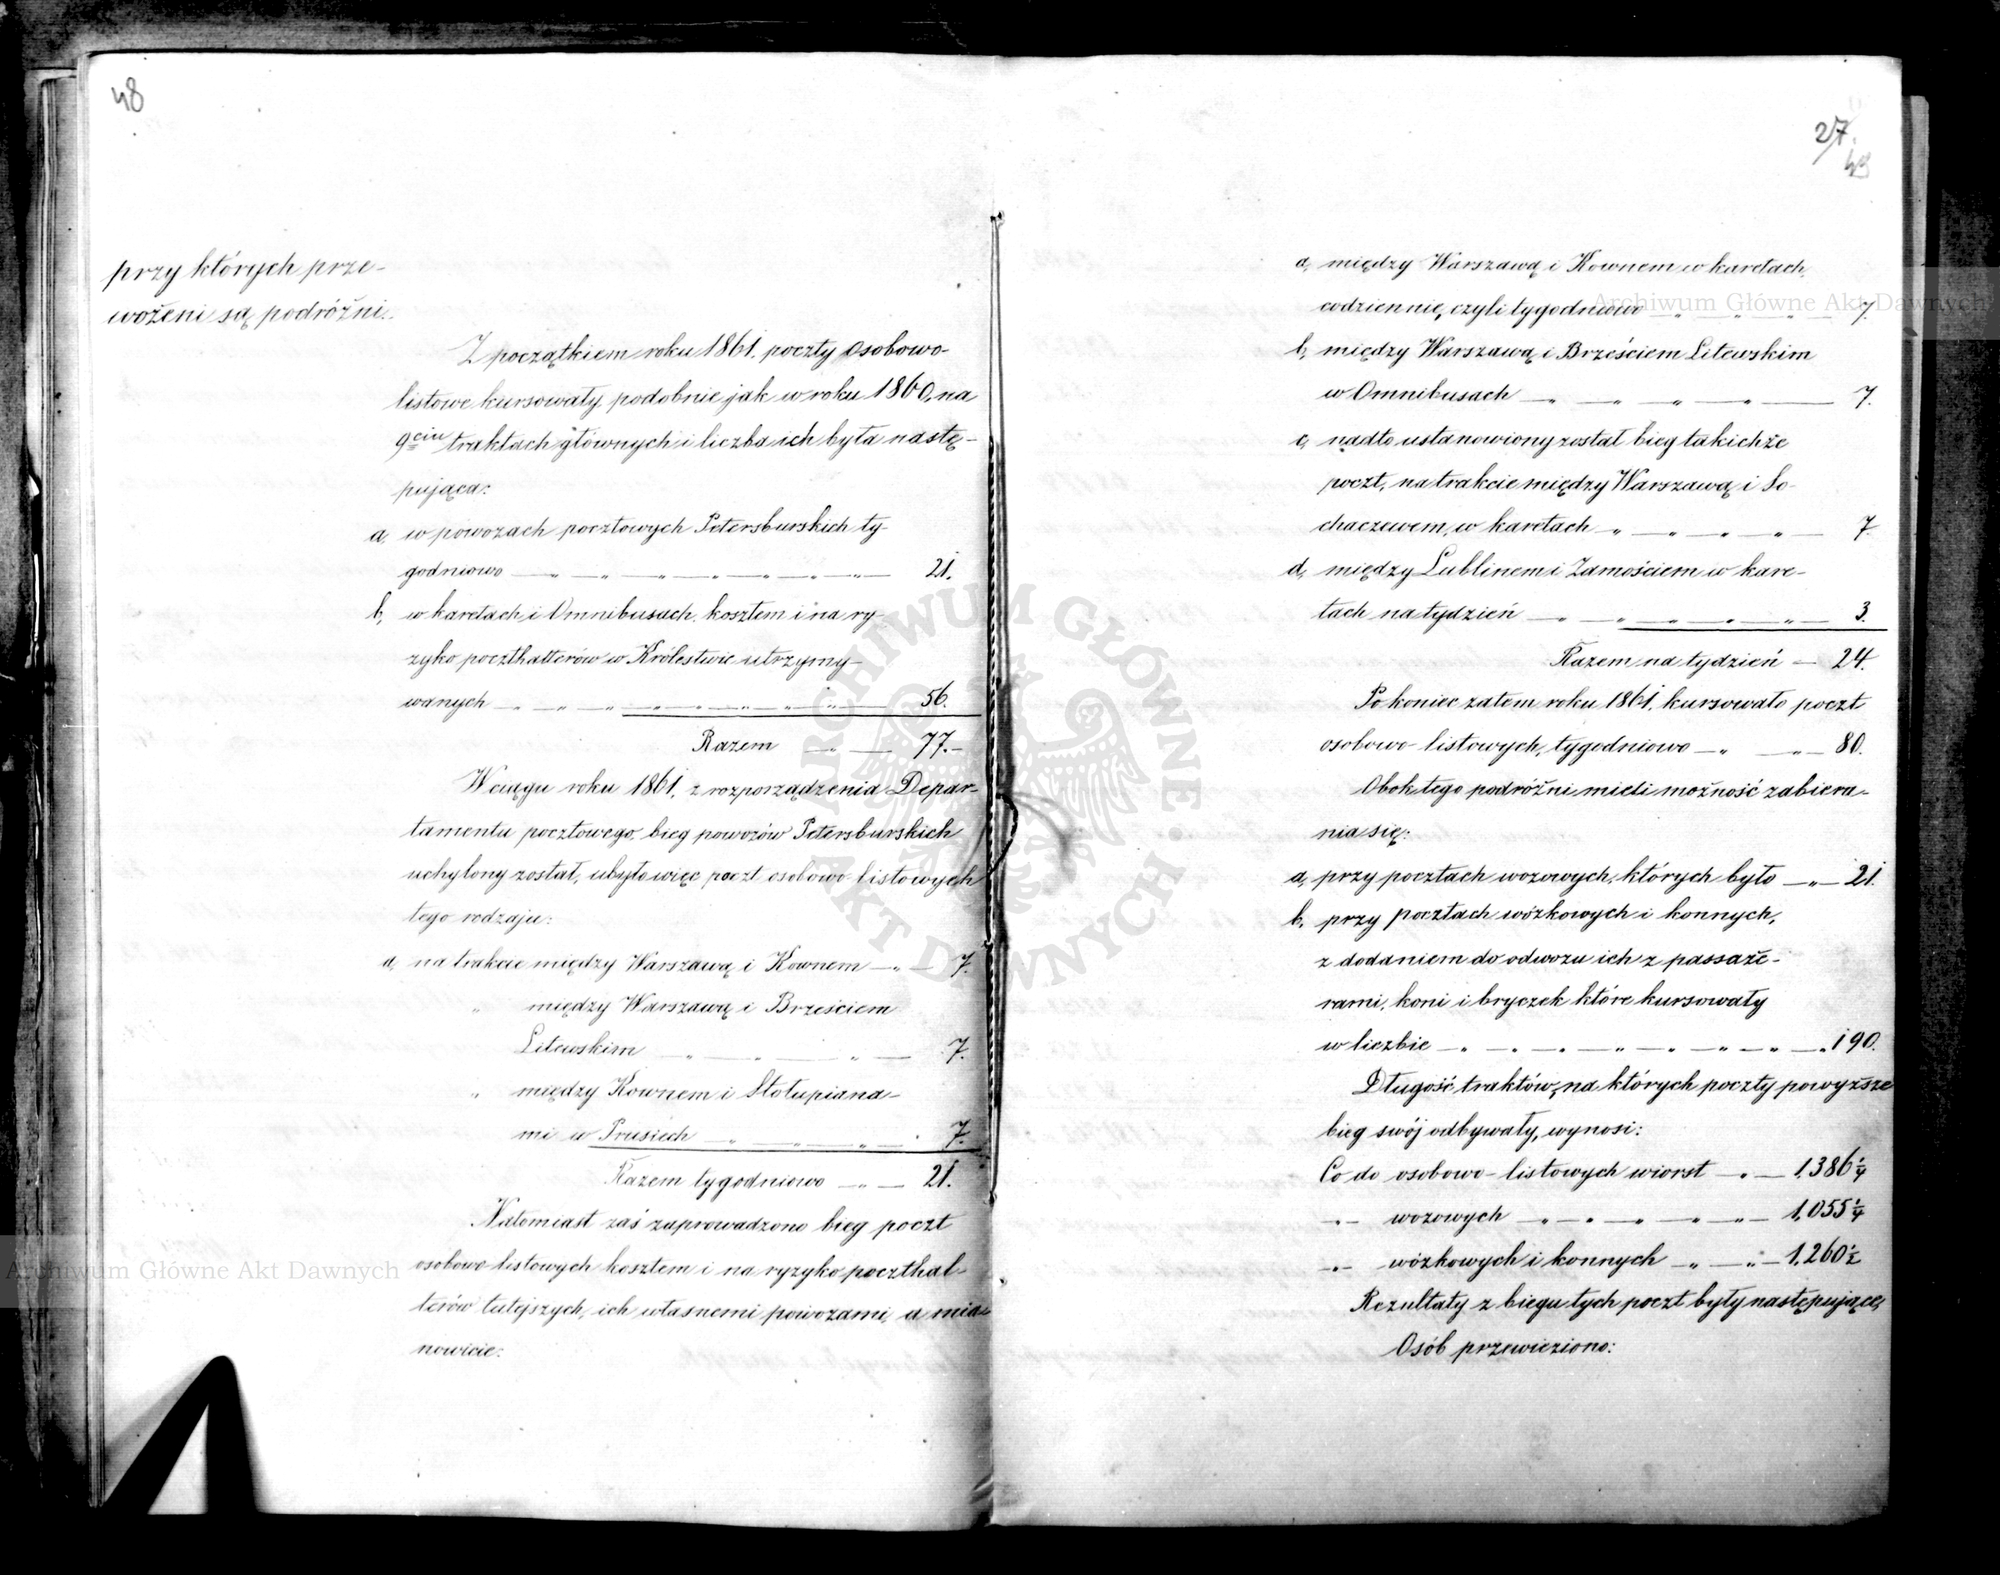 48
przy których prze-
wożeni są podróżni.
Z początkiem roku 1861, poczty osobowo-
listowe kursowały, podobnie jak w roku 1860, na
9ciu traktach głównych i liczba ich była nastę-
pująca:
a, w powozach pocztowych Petersburskich ty-
godniowo — " — " — " — " — " — " — " — 21.
b, w karetach i Omnibusach, kosztem i na ry-
zyko poczthalterów w Królestwie utrzymy-
wanych — " — " — " — " — " — " — " — 56.
Razem — " — 77.-
W ciągu roku 1861, z rozporządzenia Depar-
tamentu pocztowego, bieg powozów Petersburskich
uchylony został, ubyło więc poczt osobowo listowych
tego rodzaju:
a, na trakcie między Warszawą i Kownem — " — 7.
" między Warszawą i Brześciem
Litewskim — " — " — " — 7.
" między Kownem i Stołupiana-
mi w Prusiech — " — " — " — 7.
Razem tygodniowo — " — 21.
Natomiast zaś zaprowadzono bieg poczt
osobowo listowych kosztem i na ryzyko poczthal-
terów tutejszych, ich własnemi powozami, a mia-
nowicie:
27.
49
a, między Warszawą i Kownem w karetach,
codziennie, czyli tygodniowo — " — " — " — 7.
b, między Warszawą i Brześciem Litewskim
w Omnibusach — " — " — " — " — 7.
c, nadto ustanowiony został bieg takichże
poczt, na trakcie między Warszawą i So-
chaczewem, w karetach — " — " — " — " — 7.
d, między Lublinem i Zamościem w kare-
tach na tydzień — " — " — " — " — " — 3.
Razem na tydzień — 24.
Po koniec zatem roku 1861, kursowało poczt
osobowo-listowych, tygodniowo — " — " — 80.
Obok tego podróżni mieli możność zabiera-
nia się:
a, przy pocztach wozowych, których było — " — 21.
b, przy pocztach wózkowych i konnych,
z dodaniem do odwozu ich z passaże-
rami, koni i bryczek które kursowały
w liczbie — " — " — " — " — " — " — " — " 190.
Długość traktów, na których poczty powyższe
bieg swój odbywały, wynosi:
Co do osobowo-listowych wiorst — " — 1386 1/4
— " — wozowych — " — " — " — " — " — 1,055 1/4
— " — wózkowych i konnych — " — " — 1,260 1/2
Rezultaty z biegu tych poczt były następujące,
Osób przewieziono:
Archiwum Główne Akt Dawnych
Archiwum Główne Akt Dawnych
ARCHIWUM GŁÓWNE • AKT DAWNYCH •